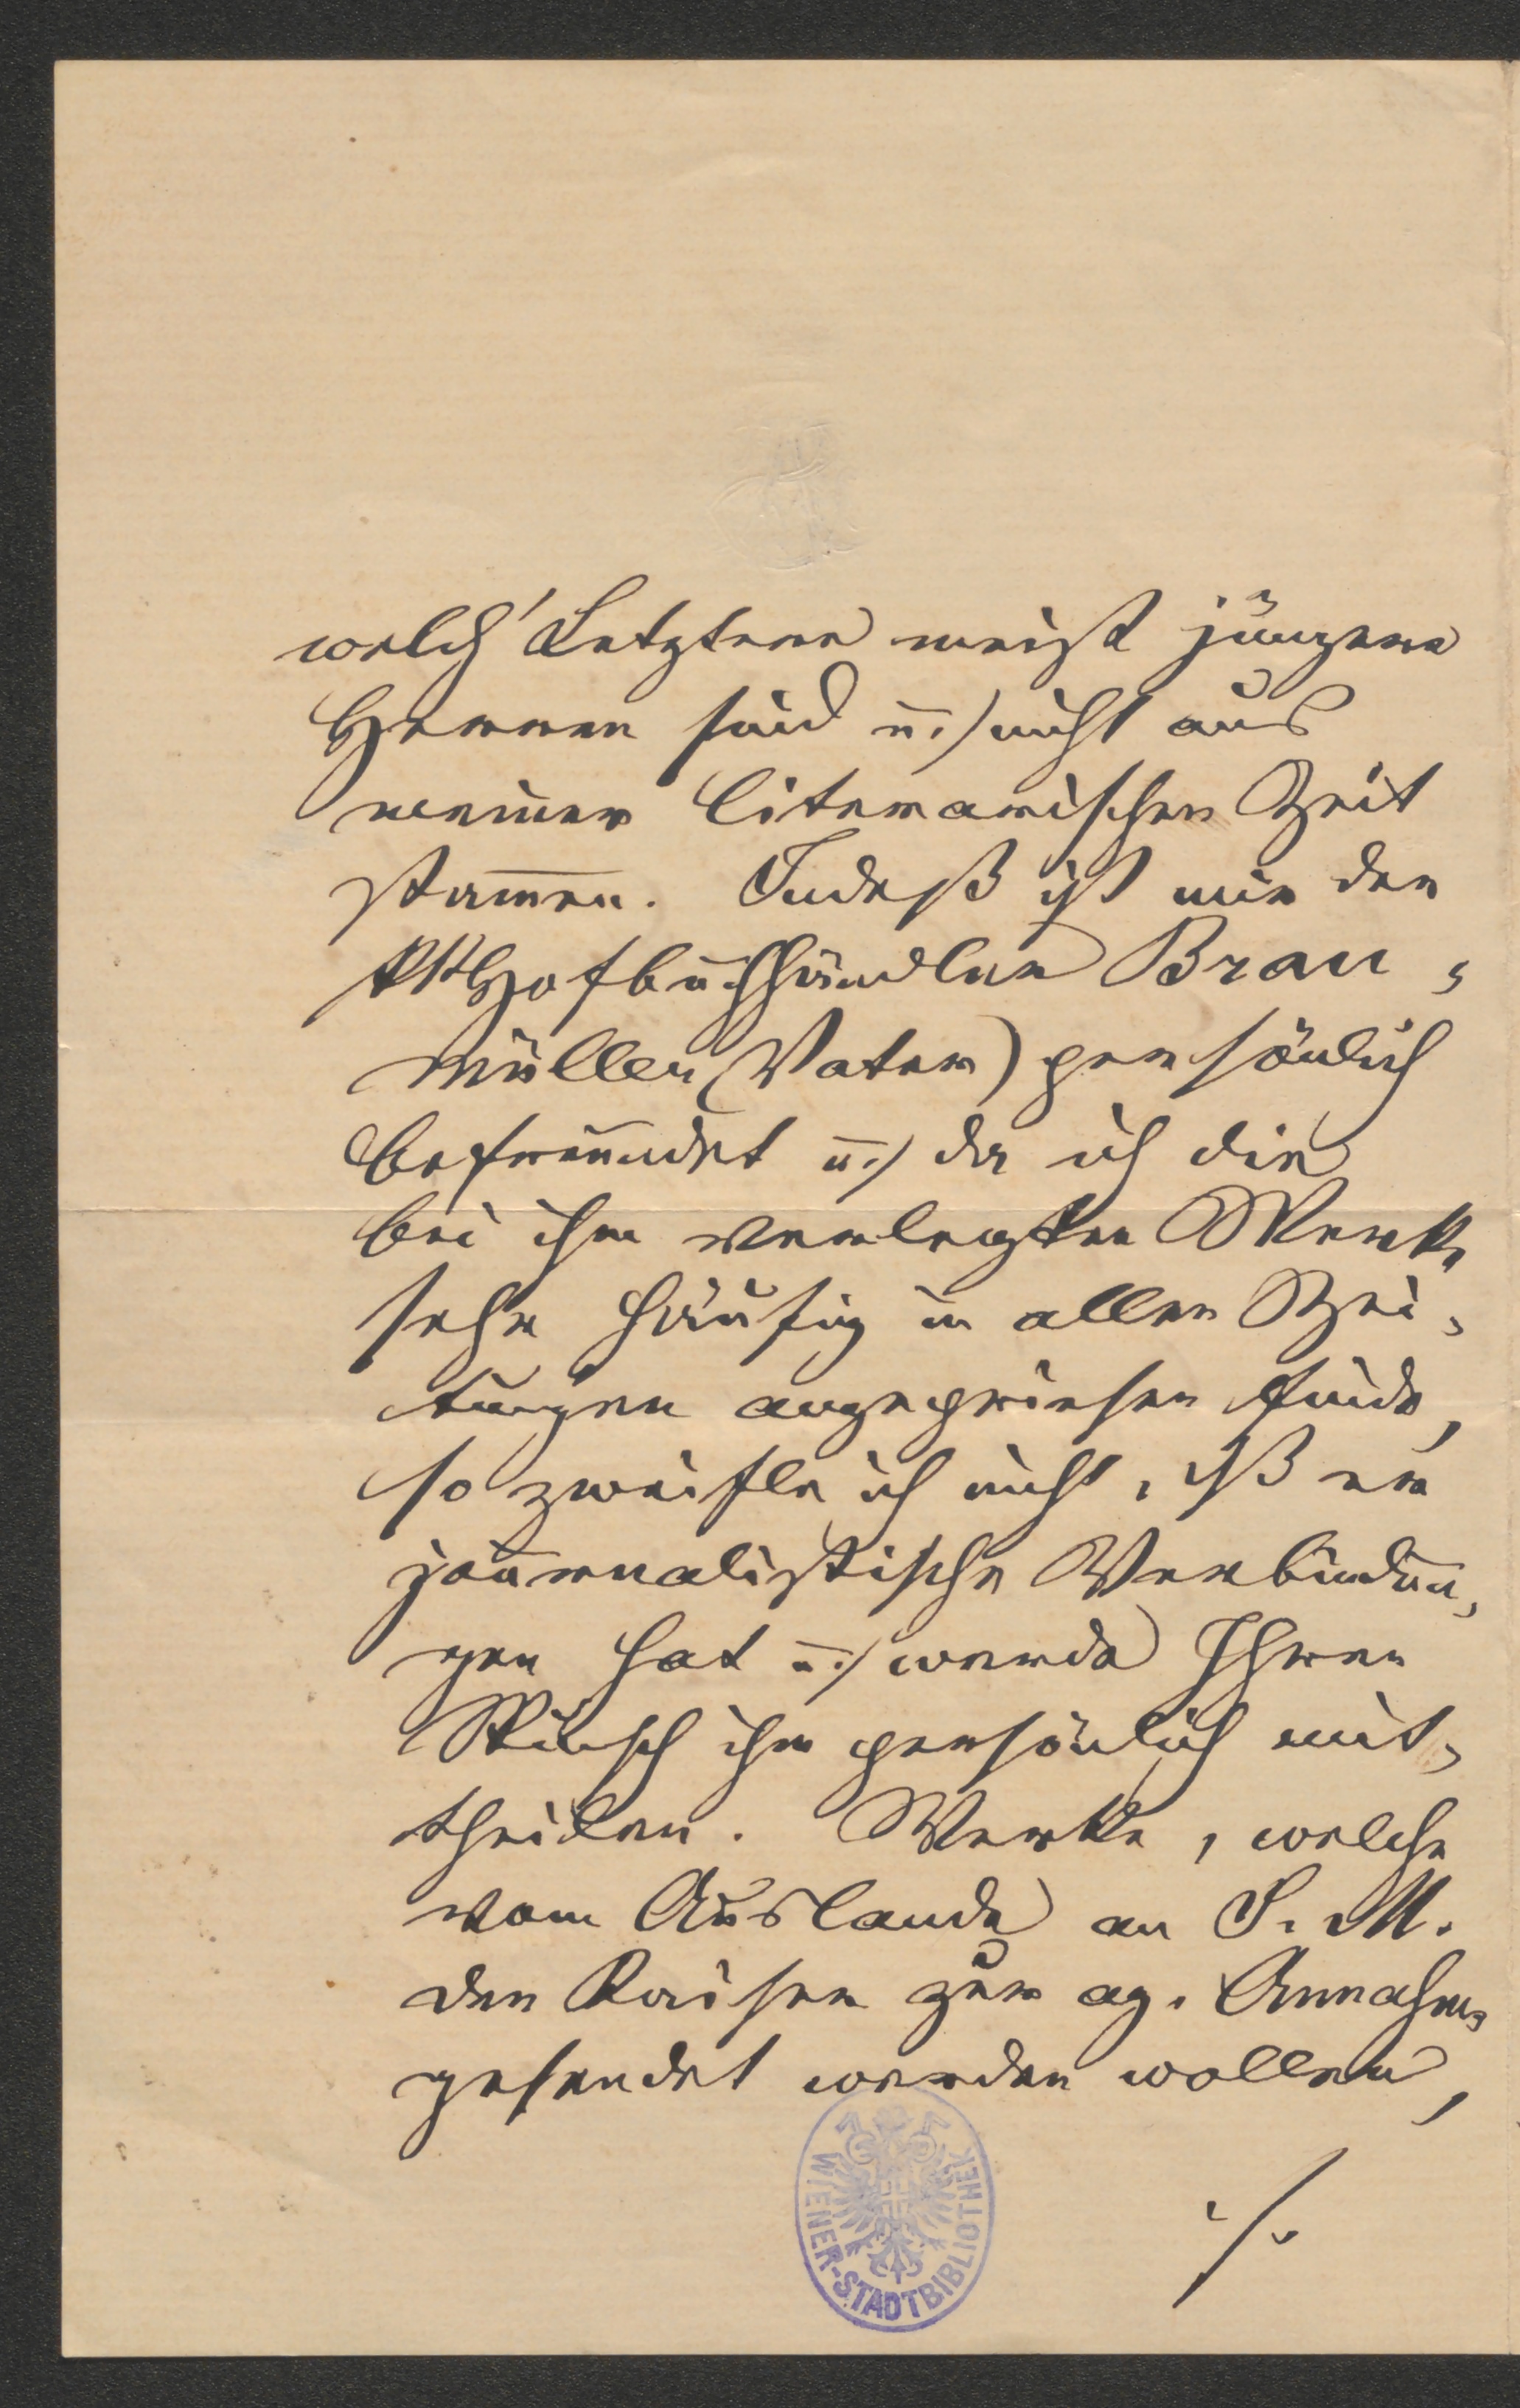 welch' Letztere meist jüngere
Herren sind u. nicht aus
meiner literarischen Zeit
stam̅en. Indeß ist mir der
kk Hofbuchhändler Brau-
müller (Vater) persönlich
befreundet u. da ich die
bei ihm verlegten Werke
sehr häufig in allen Zei-
tungen angepriesen finde,
so zweifle ich nicht, dß er
journalistische Verbindun-
gen hat u. werde Ihren
Wunsch ihm persönlich mit-
theilen. Werke, welche
vom Auslande an S. M.
den Kaiser zur ag. Annahme
gesendet werden wollen,
./.
WIENER-STADTBIBLIOTHEK